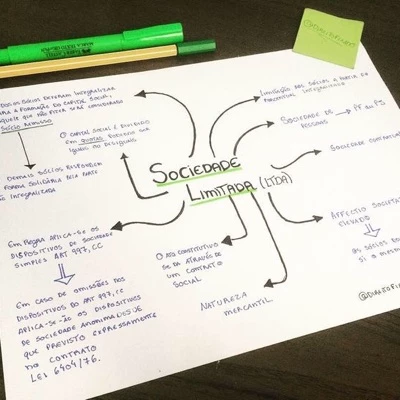 SOCIEDADE
LIMITADA (LTDA)
OS SÓCIOS DEVERAM INTEGRALIZAR
PARA A FORMAÇÃO DO CAPITAL SOCIAL,
AQUELE QUE NÃO FIZER SERÁ CONSIDERADO
SÓCIO REMISSO
DEMAIS SÓCIOS RESPONDEM
FORMA SOLIDÁRIA PELA PARTE
NÃO INTEGRALIZADA
O CAPITAL SOCIAL É DIVIDIDO
EM QUOTAS, PODENDO SER
IGUAIS OU DESIGUAIS
LIMITAÇÃO DOS SÓCIOS A PARTIR DA
INTEGRALIZADA
SOCIEDADE DE
PESSOAS
PF OU PJ
SOCIEDADE
AFFECTIO SOCIETA
ELEVADO
OS SÓCIOS
SI O MESMO
EM REGRA APLICA-SE OS
DISPOSITIVOS DE SOCIEDADE
SIMPLES ART 997, CC
EM CASO DE OMISSÕES NOS
DISPOSITIVOS DO ART 997, CC
APLICA-SE-ÃO OS DISPOSITIVOS
DE SOCIEDADE ANONIMA DESDE
QUE PREVISTO EXPRESSAMENTE
NO CONTRATO
LEI 6404/76.
O ATO CONSTITUTIVO
SE DA ATRAVÉS DE
UM CONTRATO
SOCIAL
NATUREZA
MERCANTIL